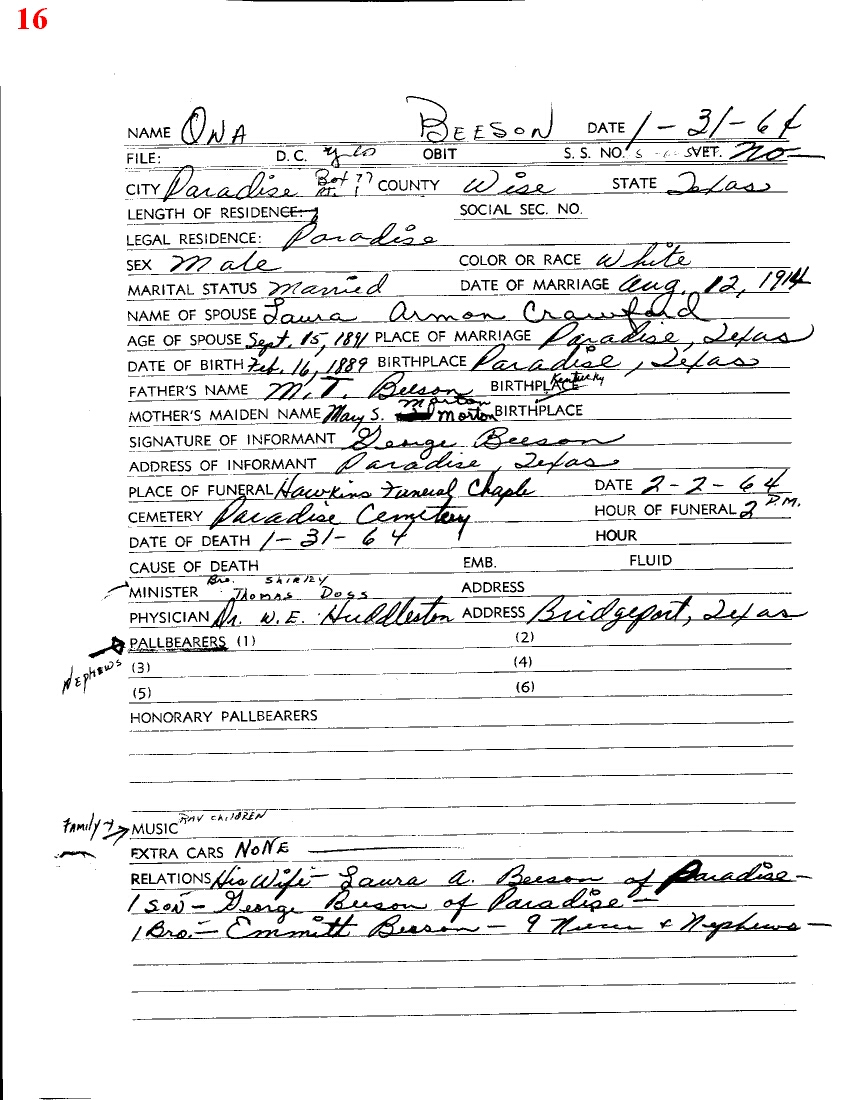 16
NAME ONA BEESON DATE 1-31-64
FILE: D.C. yes OBIT S. S. NO. VET. NO
CITY Paradise Box 77 Rt. 1 COUNTY Wise STATE Texas
LENGTH OF RESIDENCE: SOCIAL SEC. NO.
LEGAL RESIDENCE: Paradise
SEX Male COLOR OR RACE White
MARITAL STATUS Married DATE OF MARRIAGE Aug. 12, 1914
NAME OF SPOUSE Laura Armon Crawford
AGE OF SPOUSE Sept. 15, 1891 PLACE OF MARRIAGE Paradise, Texas
DATE OF BIRTH Feb. 16, 1889 BIRTHPLACE Paradise, Texas
FATHER'S NAME M.T. Beeson BIRTHPLACE Kentucky
MOTHER'S MAIDEN NAME Mary S. Morton Morton BIRTHPLACE
SIGNATURE OF INFORMANT George Beeson
ADDRESS OF INFORMANT Paradise, Texas
PLACE OF FUNERAL Hawkins Funeral Chaple DATE 2-2-64
CEMETERY Paradise Cemetery HOUR OF FUNERAL 2 P.M.
DATE OF DEATH 1-31-64 HOUR
CAUSE OF DEATH EMB. FLUID
MINISTER Bro. SHIRLEY Thomas Doss ADDRESS
PHYSICIAN Dr. W.E. Huddleston ADDRESS Bridgeport, Texas
PALLBEARERS (1) (2)
NEPHEWS (3) (4)
(5) (6)
HONORARY PALLBEARERS
Family → MUSIC CHILDREN
EXTRA CARS NONE
RELATIONS His Wife - Laura A. Beeson of Paradise -
1 SON - George Beeson of Paradise -
1 Bro. - Emmitt Beeson - 9 Nieces & Nephews -